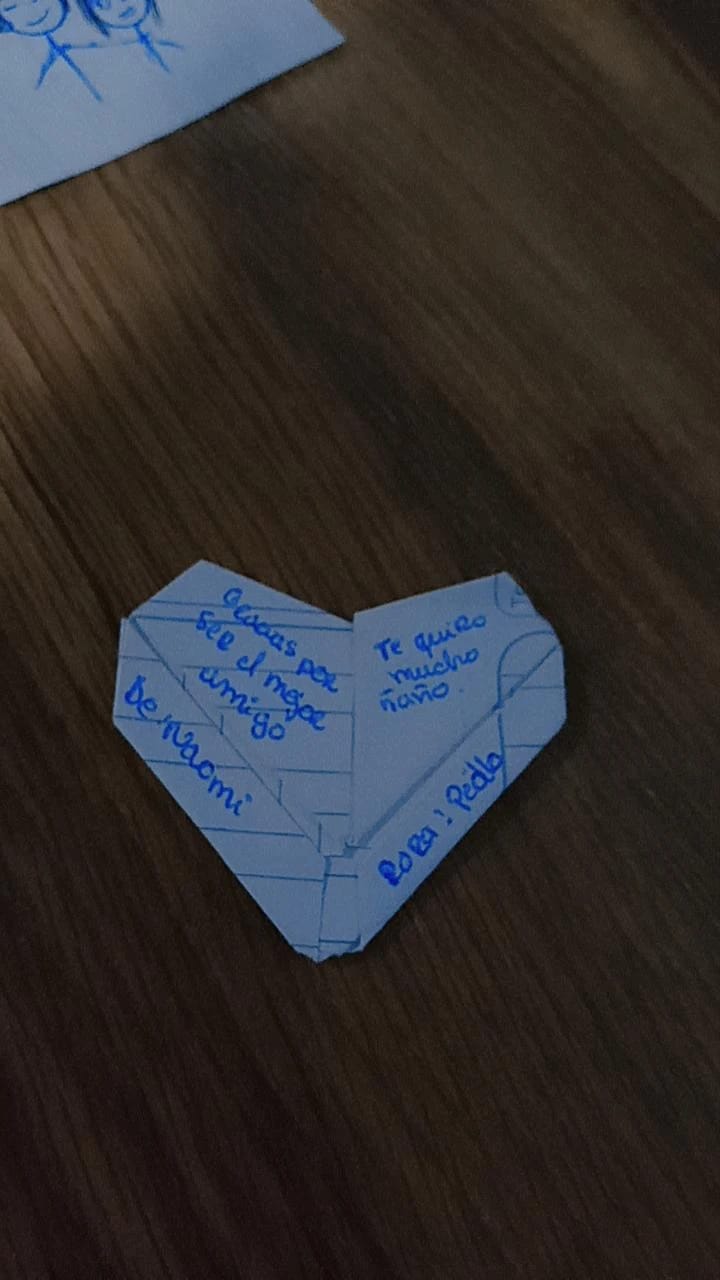 Gracias por
ser el mejor
amigo
De: Naomi
Te quiro
mucho
ñaño.
Para: Pedlo